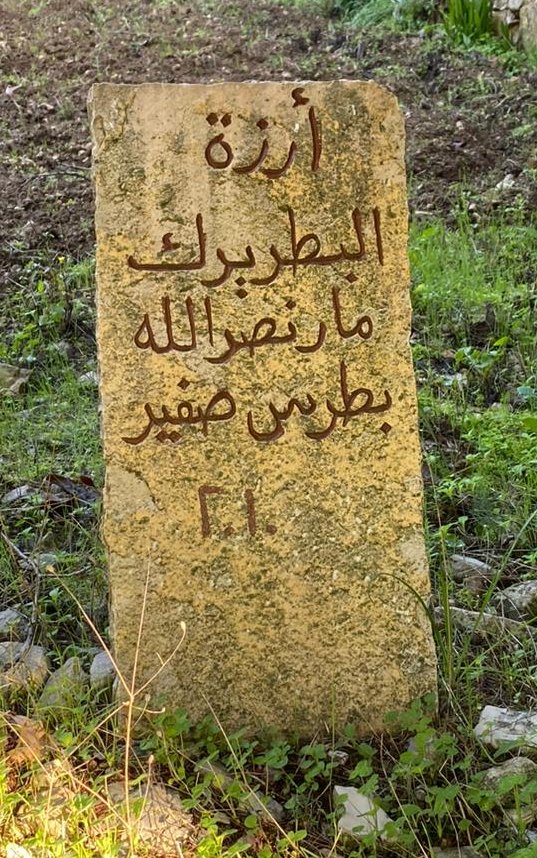 أرزة
البطريرك
مار نصرالله
بطرس صفير
٢٠١٠